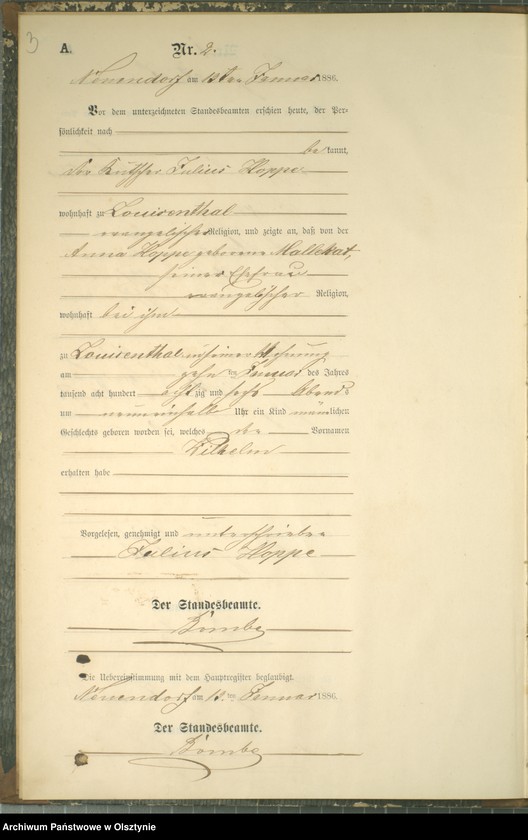 3
A. Nr. 2.
Neuendorf am ten Januar 1886.
Vor dem unterzeichneten Standesbeamten erschien heute, der Per-
sönlichkeit nach
be kannt,
der Kutscher Julius Hoppe
wohnhaft zu Louisenthal
evangelischer Religion, und zeigte an, daß von der
Anna Hoppe geborene
seiner Ehefrau
evangelischer Religion,
wohnhaft bei ihm
zu Louisenthal in seiner Wohnung
am zehn ten Januar des Jahres
tausend acht hundert acht zig und sechs Abends
um neuneinhalb Uhr ein Kind männlichen
Geschlechts geboren worden sei, welches Vornamen
Wilhelm
erhalten habe
Vorgelesen, genehmigt und unterschrieben
Julius Hoppe
Der Standesbeamte.
Die Uebereinstimmung mit dem Hauptregister beglaubigt.
Neuendorf am ten Januar 1886.
Der Standesbeamte.
Archiwum Państwowe w Olsztynie